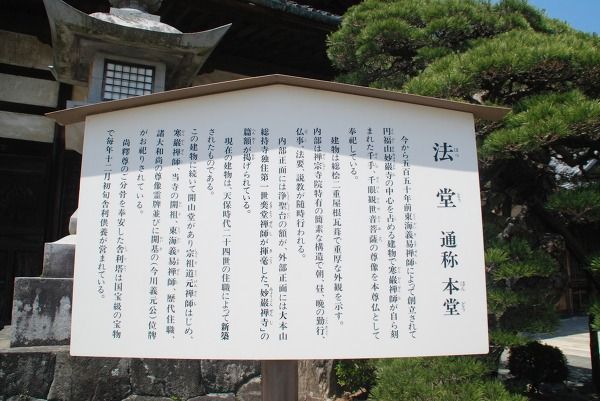 法堂 通称 本堂
はっ とう ほん どう
今から五百五十年前東海義易禅師によって創立されて
円福山妙厳寺の中心を占める建物で寒巌禅師が自ら刻
まれた千手、千眼観世音菩薩の尊像を本尊仏として
奉祀している。
建物は総桧二重屋根瓦葺で重厚な外観を示す。
内部は禅宗寺院特有の簡素な構造で朝、昼、晩の勤行、
仏事、法要、説教が随時行われる。
内部正面には浄聖台の額が、外部正面には大本山
総持寺独住第一世奕堂禅師が揮毫した「妙厳禅寺」の
篇額が掲げられている。
現在の建物は、天保時代二十四世の住職によって新築
されたものである。
この建物に続いて開山堂があり宗祖道元禅師はじめ、
寒巌禅師、当寺の開祖、東海義易禅師、歴代住職、
諸大和尚の尊像霊牌並びに開基の(今川義元公)位牌
がお祀りされている。
尚釋尊のご分骨を奉安した舎利塔は国宝級の宝物
で毎年十二月初旬舎利供養が営まれている。